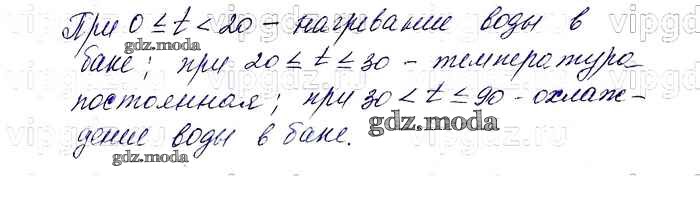 При 0 ≤ t < 20 - нагревание воды в
баке; при 20 ≤ t ≤ 30 - температура
постоянная; при 30 < t ≤ 90 - охлаж-
дение воды в баке.
gdz.moda
gdz.moda
gdz.moda
gdz.moda